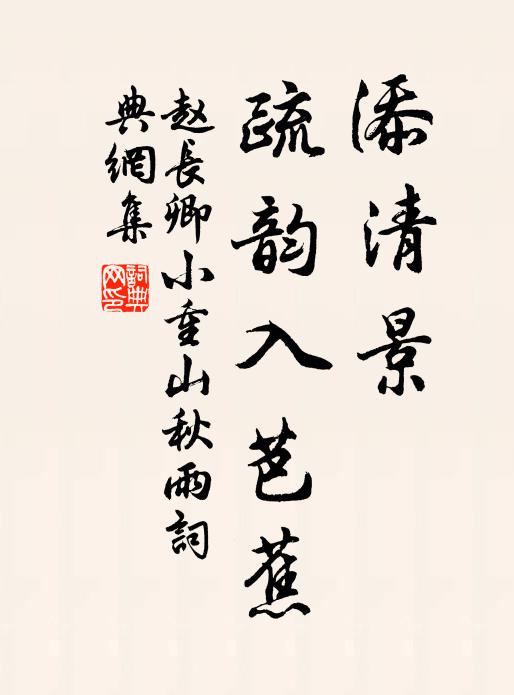 添清景
疏韵入芭蕉
赵長卿小重山秋雨詞
典網集
詞典網印